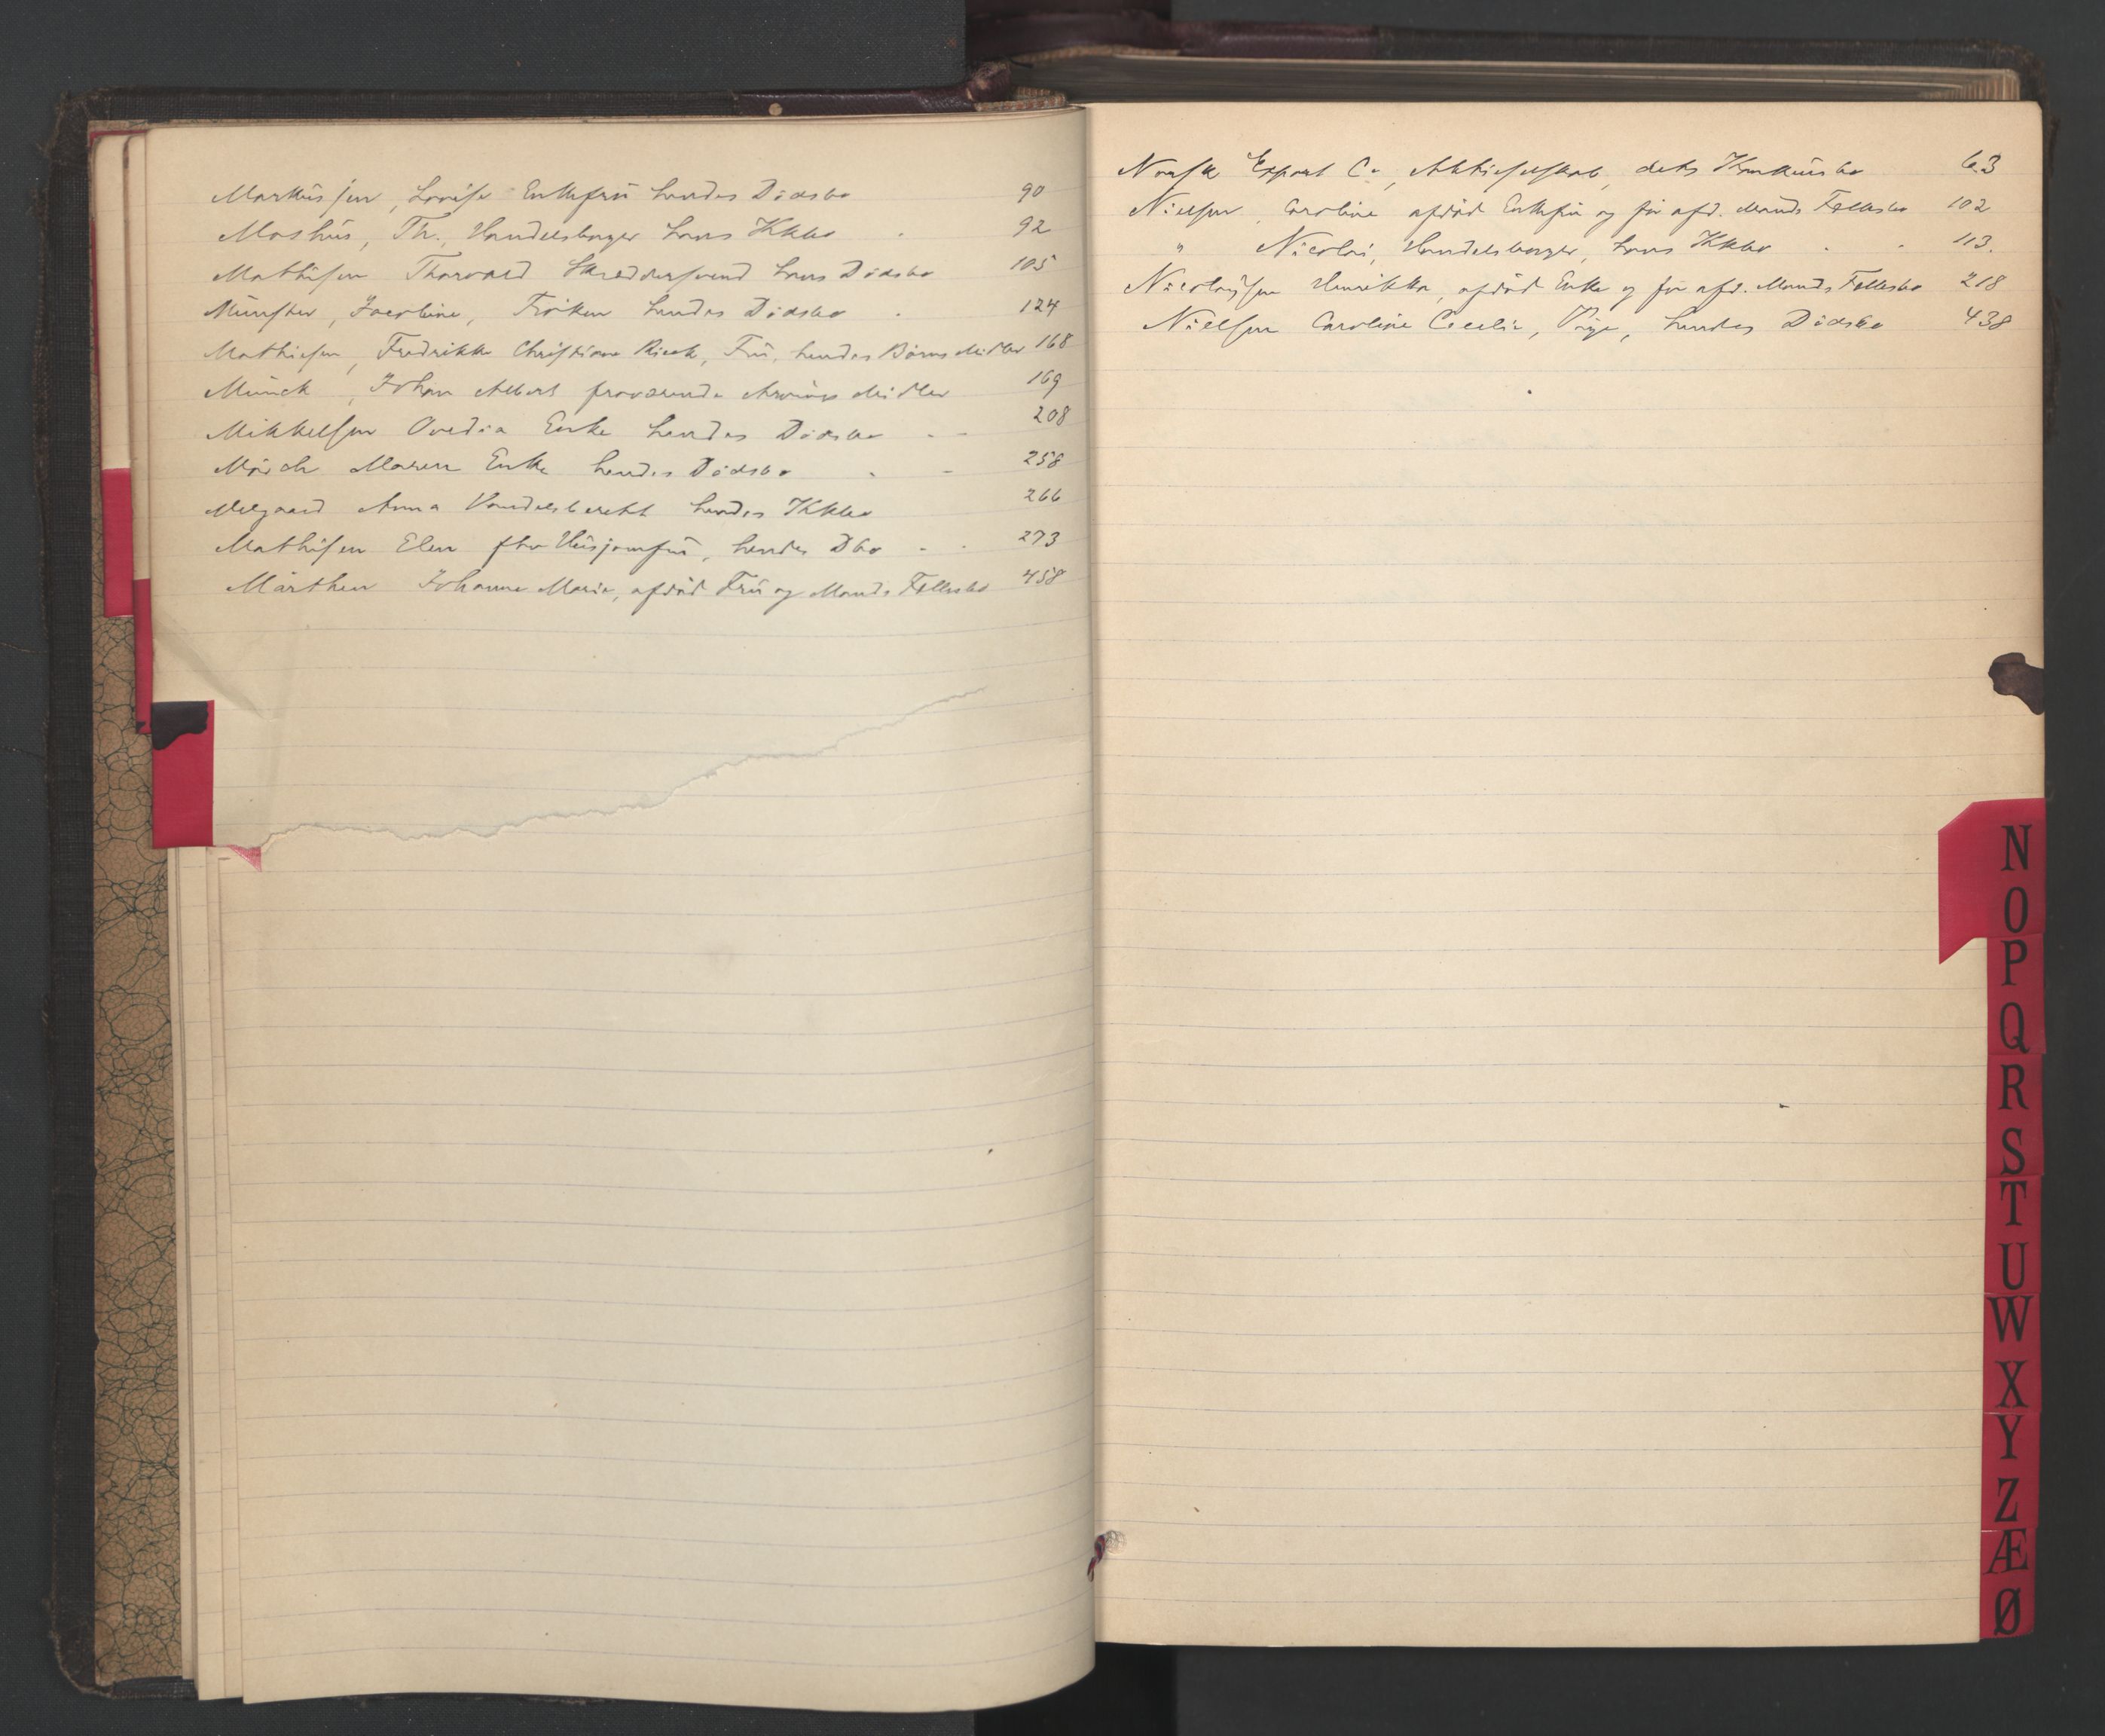 Markussen, Lovise Enkefru hendes Dödsbo 90
Moshus, Th., Handelsborger hans Kkbo 92
Mathisen Thorvald Skreddersvend hans Dödsbo 105
Münster, Jacobine, Fröken hendes Dödsbo 124
Mathiesen, Fredrikke Christiane Rieck, Fru, hendes Börns Midler 168
Münch, Johan Albert fraværende Arvings Midler 169
Mikkelsen Ovedia Enke hendes Dödsbo 208
Mörch Maren Enke hendes Dödsbo 258
Melgaard Anna Handelsberett hendes Kkbo 266
Mathisen Elen fhv Husjomfru, hendes Dbo 273
Marthen Johanne Marie, afdöd Fru og Mands Fællesbo 458
Norsk Export Co, Aktieselskab, dets Konkursbo 63
Nielsen, Caroline afdöd Enkefru og för afd. Mands Fællesbo 102
" Nicolai, Handelsborger, hans Kkbo 113.
Nicolaysen Henrikke, afdöd Enke og för afd. Mands Fællesbo 218
Nielsen Caroline Cecelie, Pige, hendes Dödsbo 438
N
O
P
Q
R
S
T
U
W
X
Y
Z
Æ
Ø